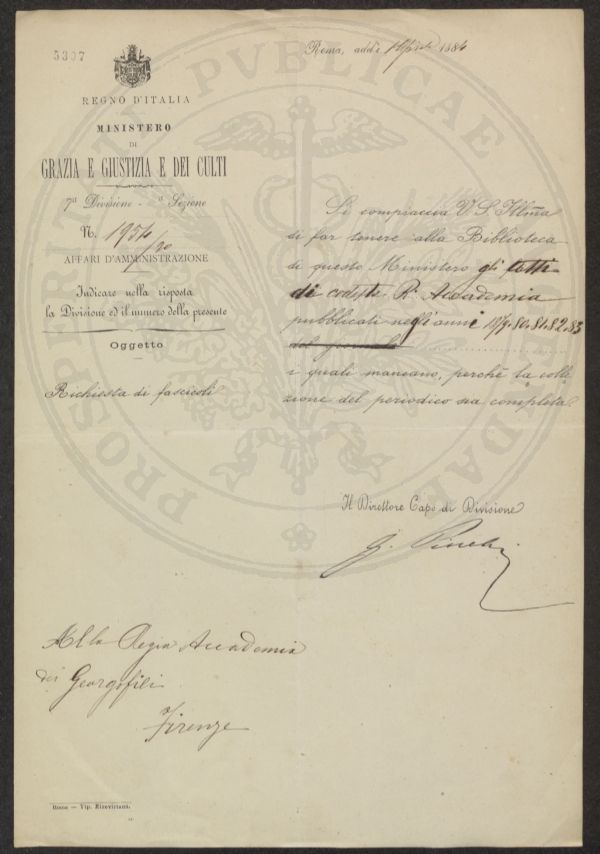 5307
Roma, addì 1 Aprile 1884
REGNO D'ITALIA
MINISTERO
DI
GRAZIA E GIUSTIZIA E DEI CULTI
7ª Divisione - ª Sezione
N. 1954/20
AFFARI D'AMMINISTRAZIONE
Indicare nella risposta
la Divisione ed il numero della presente
Oggetto
Richiesta di fascicoli
Si compiaccia V. S. Illm̃a
di far tenere alla Biblioteca
di questo Ministero gli Atti
di codesta R. Accademia
pubblicati negli anni 1879.80.81.82.83
del giornale
i quali mancano, perchè la colle
zione del periodico sia completa.
Il Direttore Capo di Divisione
G.
Alla Regia Accademia
dei Georgofili
Firenze
Roma — Tip. Ripamonti.
PROSPERITATI PVBLICAE AVGENDAE